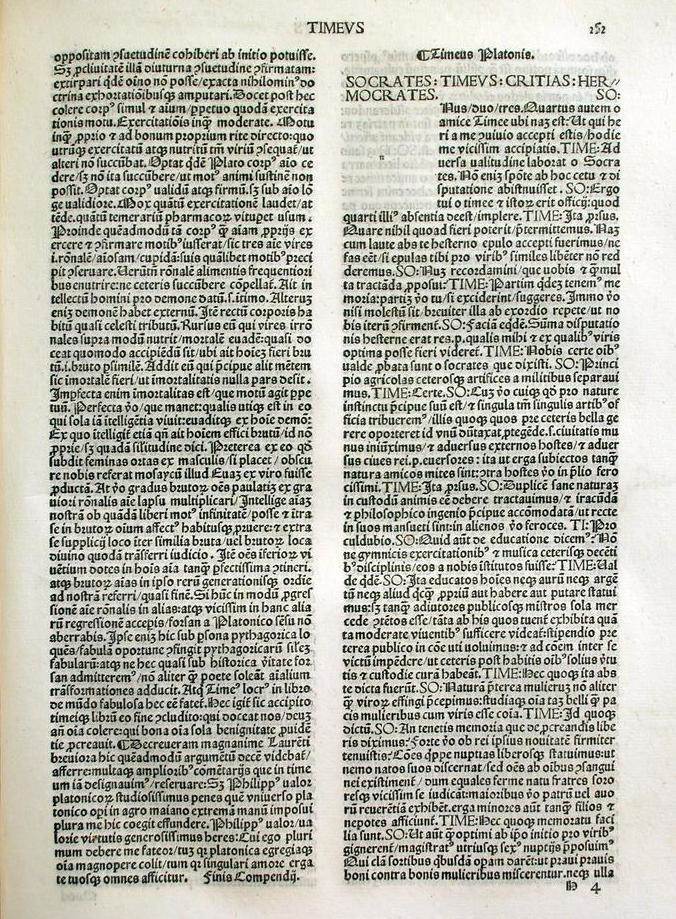 TIMEVS
252
oppositam ꝯsuetudinē cohiberi ab initio potuisse.
Sꝫ ꝓcliuitatē illā diuturna ꝯsuetudine ꝯfirmatam:
extirpari qdē oīno nō posse/exacta nihilominꝰ do
ctrina exhortatiōibusqꝫ amputari. Docet post hec
colere corpꝰ simul & aīum/ꝑpetuo quodā exercita
tionis motu. Exercitatiōis inqꝫ moderate. Motu
inqꝫ ꝓprio & ad bonum proprium rite directo: quo
utriusqꝫ exercitatū atqꝫ nutritū tm̄ viriū ꝯsequat̄/ut
alteri nō succūbat. Optat qdē Plato corpꝰ aīo ce
dere/sꝫ nō ita succūbere/ut motꝰ animi sustinē non
possit. Optat corpꝰ ualidū atqꝫ firmū.sꝫ sub aīo lō
ge validiore. Mox quātū exercitationē laudet/at
tēde.quātū temerariū pharmacoꝝ vitupet usum.
Proinde quēadmodū tā corpꝰ qꝫ aīam ꝓprijs ex
ercere & ꝯfirmare motibꝰ iusserat/sic tres aīe vires
i.rōnalē/aīosam/cupidā:suis qualibet motibꝰ preci
pit ꝯseruare. Uerūtn̄ rōnalē alimentis frequentiori
bus enutrire:ne ceteris succūbere cōpellat̄. Ait in
tellectū homini pro demone datū.s.itimo. Alterūꝫ
enīꝫ demonē habet externū. Itē rectū corporis ha
bitū quasi celesti tributū. Rursus eū qui vires irrō
nales supra modū nutrit/mortalē euadē:quasi do
ceat quomodo accipiēdū sit/ubi ait hoīeꝫ fieri bru
tū.i.bruto ꝑsimilē. Addit eū qui p̄cipue alit mētem
sic īmortalē fieri/ut īmortalitatis nulla pars desit.
Impfecta enim īmortalitas est/que motū agit ꝑpe
tuū. Perfecta vo/que manet:qualis utiqꝫ est in eo
qui sola iā itelligētia viuit:euaditqꝫ ex hoīe demō:
Ex quo itelligit̄ etiā qn̄ ait hoīem effici brutū/id nō
ꝓprie/sꝫ quadā silitudine dici. Preterea ex eo qd
subdit feminas ortas ex masculis/si placet/obscu
re nobis referat mosaycū illud Euaꝫ ex viro fuisse
ꝓductā. At vo gradus brutoꝝ oēs paulatī ex gra
uiori rōnalis aīe lapsu multiplicari/Intellige aīaꝫ
nostrā ob quādā liberi motꝰ infinitatē/posse & itra
se in brutoꝝ oīum affectꝰ habitusqꝫ ꝓruere:& extra
se supplicij loco iter similia bruta/uel brutoꝝ loca
diuino quodā trāsferri iudicio. Itē oēs iferioꝝ vi
uētium dotes in hoīs aīa tanqꝫ ꝑfectissima ꝯtineri.
atqꝫ brutoꝝ aīas in ipso rerū generationisqꝫ ordīe
ad nostrā referri/quasi finē. Si hūc in modū ꝓgres
sionē aīe rōnalis in alias:atqꝫ vicissim in hanc alia
rū regressionē accepis/forsan a Platonico sēsu nō
aberrabis. Ipse enīꝫ hic sub ꝑsona pythagorica lo
quēs/fabulā oportune ꝯfingit pythagoricarū sileꝫ
fabularū:atqꝫ ne hec quasi sub historica v̄itate for
san admitterem̄/no aliter qꝫ poete soleāt aīalium
trāsformationes adducit. Atqꝫ Timeꝰ locrꝰ in libro
de mūdo fabulosa hec eē fatet̄. Hec igit̄ sic accipito
timeiqꝫ librū eo fine ꝯcludito:qui doceat nos/deuꝫ
an oīa colere:qui bona oīa sola benignitate ꝓuidē
tie ꝓcreauit. ☾Decreueram magnanime Laurēti
breuiora hic quēadmodū argumētū decē videbat̄/
afferre:multaqꝫ ampliorib̓ comētarijs que in time
um iā designauimꝰ/reseruare:Sꝫ Philippꝰ ualoꝝ
platonicoꝝ studiosissimus penes quē vniuerso pla
tonico opi in agro maiano extremā manū imposui
plura me hic coegit effundere. Philippꝰ ualor/ua
lorie virtutis generosissimus heres:Cui ego pluri
mum debere me fateor/tuꝫ qꝛ platonica egregiaqꝫ
oīa magnopere colit/tum qꝛ singulari amore erga
te tuosqꝫ omnes afficitur. Finis Compendij.
☾Timeus Platonis.
SOCRATES: TIMEVS: CRITIAS: HER//
MOCRATES. SO:
Unus/duo/tres. Quartus autem o
amice Timee ubi naꝫ est: Ut qui he
ri a me ꝯuiuio accepti estis/hodie
me vicissim accipiatis. TIME: Ad
uersa ualitudine laborat o Socra
tes. Nō enīꝫ spōte ab hoc cetu & di
sputatione abfuisset. SO: Ergo
tui o timee & istoꝝ erit officiū: quod
quarti illiꝰ absentia deest/implere. TIME: Ita ꝓrsus.
Quare nihil quod fieri poterit/p̄termittemus. Naꝫ
cum laute abs te hesterno epulo accepti fuerimus/ne
fas eēt/si epulas tibi pro viribꝰ similes libēter nō red
deremus. SO: Nuꝫ recordamini/que uobis & qꝫ mul
ta tractāda ꝓposui: TIME: Partim qdeꝫ tenemꝰ me
moria:partīꝫ vo tu/si exciderint/suggeres. Immo vo
nisi molestū sit/breuiter illa ab exordio repete/ut no
bis iterū ꝯfirment. SO: Faciā eqdē. Sūma disputatio
nis hesterne erat res.p.qualis mihi & ex qualibꝰ viris
optima posse fieri videret̄. TIME: Nobis certe oībꝰ
ualde ꝓbata sunt o socrates que dixisti. SO: Princi
pio agricolas ceterosqꝫ artifices a militibus separaui
mus. TIME: Certe. SO: Cuꝫ vo cuiqꝫ qd pro nature
instinctu p̄cipue suū est/& singula tm̄ singulis artibꝰ of
ficia tribuerem̄/illos quoqꝫ quos pre ceteris bella ge
rere oporteret id vnū dūtaxat ꝓtegēde.s.ciuitatis mu
nus iniūximus/& aduersus externos hostes/& aduer
sus ciues rei.p.euersores: ita ut erga subiectos tanqꝫ
natura amicos mites sint:ꝯtra hostes vo in p̄lio fero
cissimi. TIME: Ita ꝓrsus. SO: Duplicē sane naturaꝫ
in custodū animis eē debere tractauimus/& iracūdā
& philosophico ingenio p̄cipue accōmodatā/ut recte
in suos mansueti sint:in alienos vo feroces. TI: Pro
culdubio. SO: Quid aūt de educatione dicemꝰ: Nō
ne gymnicis exercitationibꝰ & musica ceterisqꝫ decēti
bꝰ disciplinis/eos a nobis institutos fuisse: TIME: Ual
de qdē. SO: Ita educatos hoīes neqꝫ aurū neqꝫ argē
tū neqꝫ aliud qcqꝫ ꝓpriū aut habere aut putare statui
mus:sꝫ tanqꝫ adiutores publicosqꝫ mīstros sola mer
cede ꝯtētos esse/tāta ab his quos tuent̄ exhibita quā
ta moderate viuentibꝰ sufficere videat̄:stipendio pre
terea publico in cōe uti uoluimus:& ad cōem inter se
victū impēdere/ut ceteris post habitis oībꝰ solius v̄tu
tis & custodie curā habeāt. TIME: Hec quoqꝫ ita abs
te dicta fuerūt. SO: Naturā p̄terea mulierūꝫ nō aliter
qꝫ viroꝝ effingi p̄cepimus:studiaqꝫ oīa taꝫ belli qꝫ pa
cis mulieribus cum viris esse cōia. TIME: Id quoqꝫ
dictū. SO: An tenetis memoria que de ꝓcreandis libe
ris diximus: Forte vo ob rei ipsius nouitatē firmiter
tenuistis: Cōes qppe nuptias liberosqꝫ statuimus:ut
nemo natos suos discernat/sed oēs ab oībus ꝯsangui
nei existiment̄/dum equales ferme natu fratres soro
resqꝫ vicissim se iudicāt:maioribus vo patrū vel auo
rū reuerētiā exhibēt.erga minores aūt tanqꝫ filios &
nepotes afficiunt̄. TIME: Hec quoqꝫ memoratu faci
lia sunt. SO: Ut aūt qꝫ optimi ab ip̄o initio pro viribꝰ
gignerent̄/magistratꝰ utriusqꝫ sexꝰ nuptijs p̄posuimꝰ
Qui clā sortibus qbusdā opam darēt:ut praui prauis
boni contra bonis mulieribus miscerentur.neqꝫ ulla
4